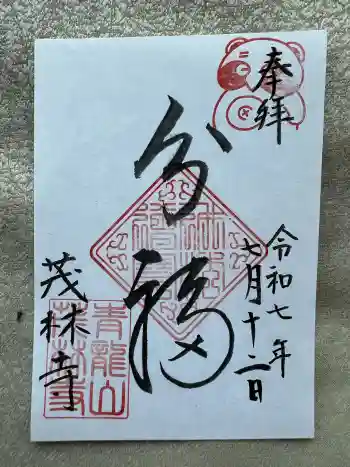 奉拝
令和七年
七月十二日
分福
茂林寺
青龍山
茂林寺